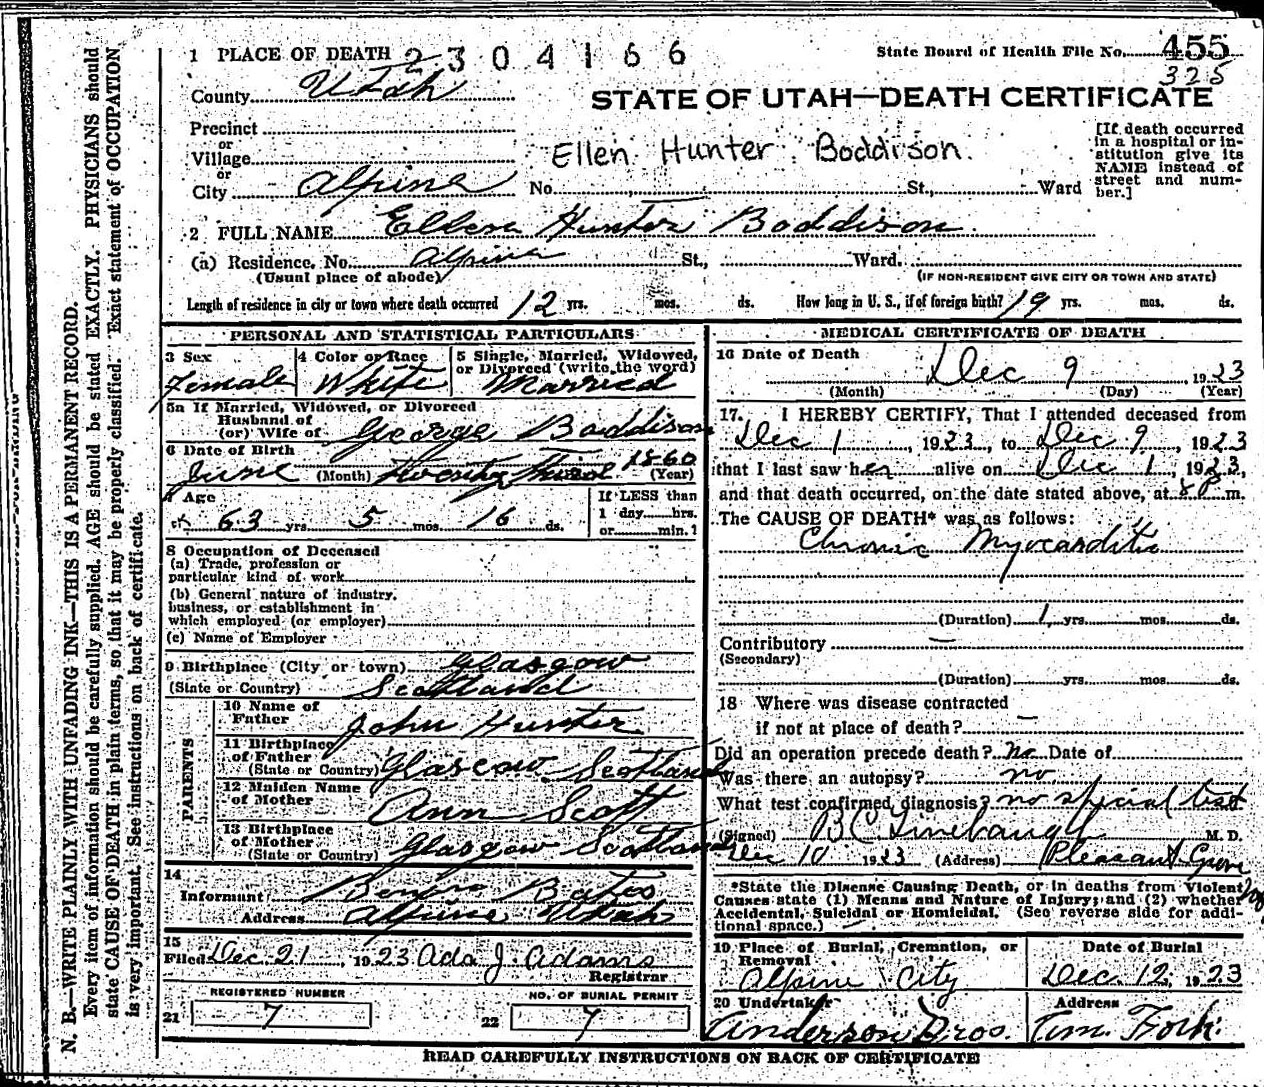 1 PLACE OF DEATH 2304166
State Board of Health File No. 455
325
County Utah
STATE OF UTAH—DEATH CERTIFICATE
Precinct
or
Village
or
City Alpine No. St., Ward
Ellen Hunter Boddison.
[If death occurred
in a hospital or in-
stitution give its
NAME instead of
street and num-
ber.]
2 FULL NAME Ellen Hunter Boddison
(a) Residence. No. Alpine St., Ward.
(Usual place of abode) (IF NON-RESIDENT GIVE CITY OR TOWN AND STATE)
Length of residence in city or town where death occurred 12 yrs. mos. ds. How long in U. S., if of foreign birth? 19 yrs. mos. ds.
PERSONAL AND STATISTICAL PARTICULARS
3 Sex
Female
4 Color or Race
White
5 Single, Married, Widowed,
or Divorced (write the word)
Married
5a If Married, Widowed, or Divorced
Husband of
(or) Wife of George Boddison
6 Date of Birth
June (Month) Twenty Third 1860 (Year)
7 Age
63 yrs. 5 mos. 16 ds.
If LESS than
1 day hrs.
or min.?
8 Occupation of Deceased
(a) Trade, profession or
particular kind of work
(b) General nature of industry,
business, or establishment in
which employed (or employer)
(c) Name of Employer
9 Birthplace (City or town) Glasgow
(State or Country) Scotland
PARENTS
10 Name of
Father John Hunter
11 Birthplace
of Father
(State or Country) Glascow Scotland
12 Maiden Name
of Mother Ann Scott
13 Birthplace
of Mother
(State or Country) Glasgow Scotland
14
Informant Bates
Address Alpine Utah
15
Filed Dec 21, 1923 Ada J. Adams
Registrar
REGISTERED NUMBER
21 7
NO. OF BURIAL PERMIT
22 7
MEDICAL CERTIFICATE OF DEATH
16 Date of Death
Dec 9, 1923
(Month) (Day) (Year)
17. I HEREBY CERTIFY, That I attended deceased from
Dec 1, 1923, to Dec 9, 1923
that I last saw her alive on Dec 1, 1923,
and that death occurred, on the date stated above, at 8 P m.
The CAUSE OF DEATH* was as follows:
Chronic Myocarditis
(Duration) 1 yrs. mos. ds.
Contributory —
(Secondary)
(Duration) yrs. mos. ds.
18 Where was disease contracted
if not at place of death? —
Did an operation precede death? no Date of
Was there an autopsy? no
What test confirmed diagnosis? no special test
(Signed) B C Linebaugh M. D.
Dec 10 1923 (Address) Pleasant Grove
*State the Disease Causing Death, or in deaths from Violent
Causes state (1) Means and Nature of Injury; and (2) whether
Accidental, Suicidal or Homicidal. (See reverse side for addi-
tional space.)
19 Place of Burial, Cremation, or
Removal
Alpine City
Date of Burial
Dec. 12, 1923
20 Undertaker
Anderson Bros.
Address
Am. Fork
READ CAREFULLY INSTRUCTIONS ON BACK OF CERTIFICATE
N. B.—WRITE PLAINLY WITH UNFADING INK—THIS IS A PERMANENT RECORD.
Every item of information should be carefully supplied. AGE should be stated EXACTLY. PHYSICIANS should
state CAUSE OF DEATH in plain terms, so that it may be properly classified. Exact statement of OCCUPATION
is very important. See instructions on back of certificate.